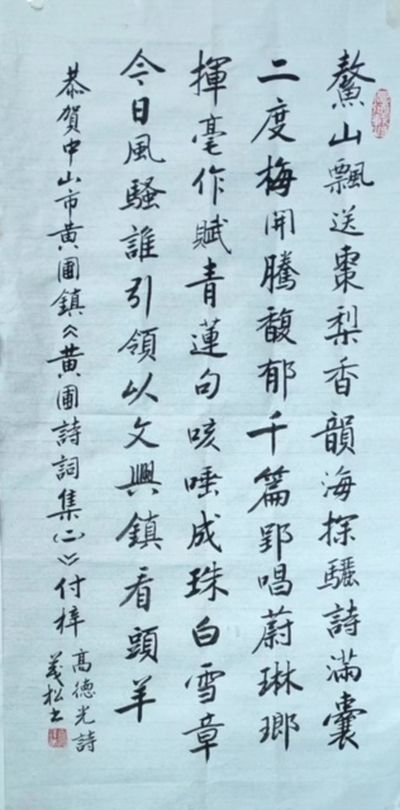 鰲山飄送棗梨香韻海探驪詩滿囊
二度梅開騰馥郁千篇郢唱蔚琳瑯
揮毫作賦青蓮句咳唾成珠白雪章
今日風騷誰引領以文興鎮看頭羊
恭賀中山市黄圃鎮《黄圃詩詞集(二)》付梓
高德光詩
茂松書